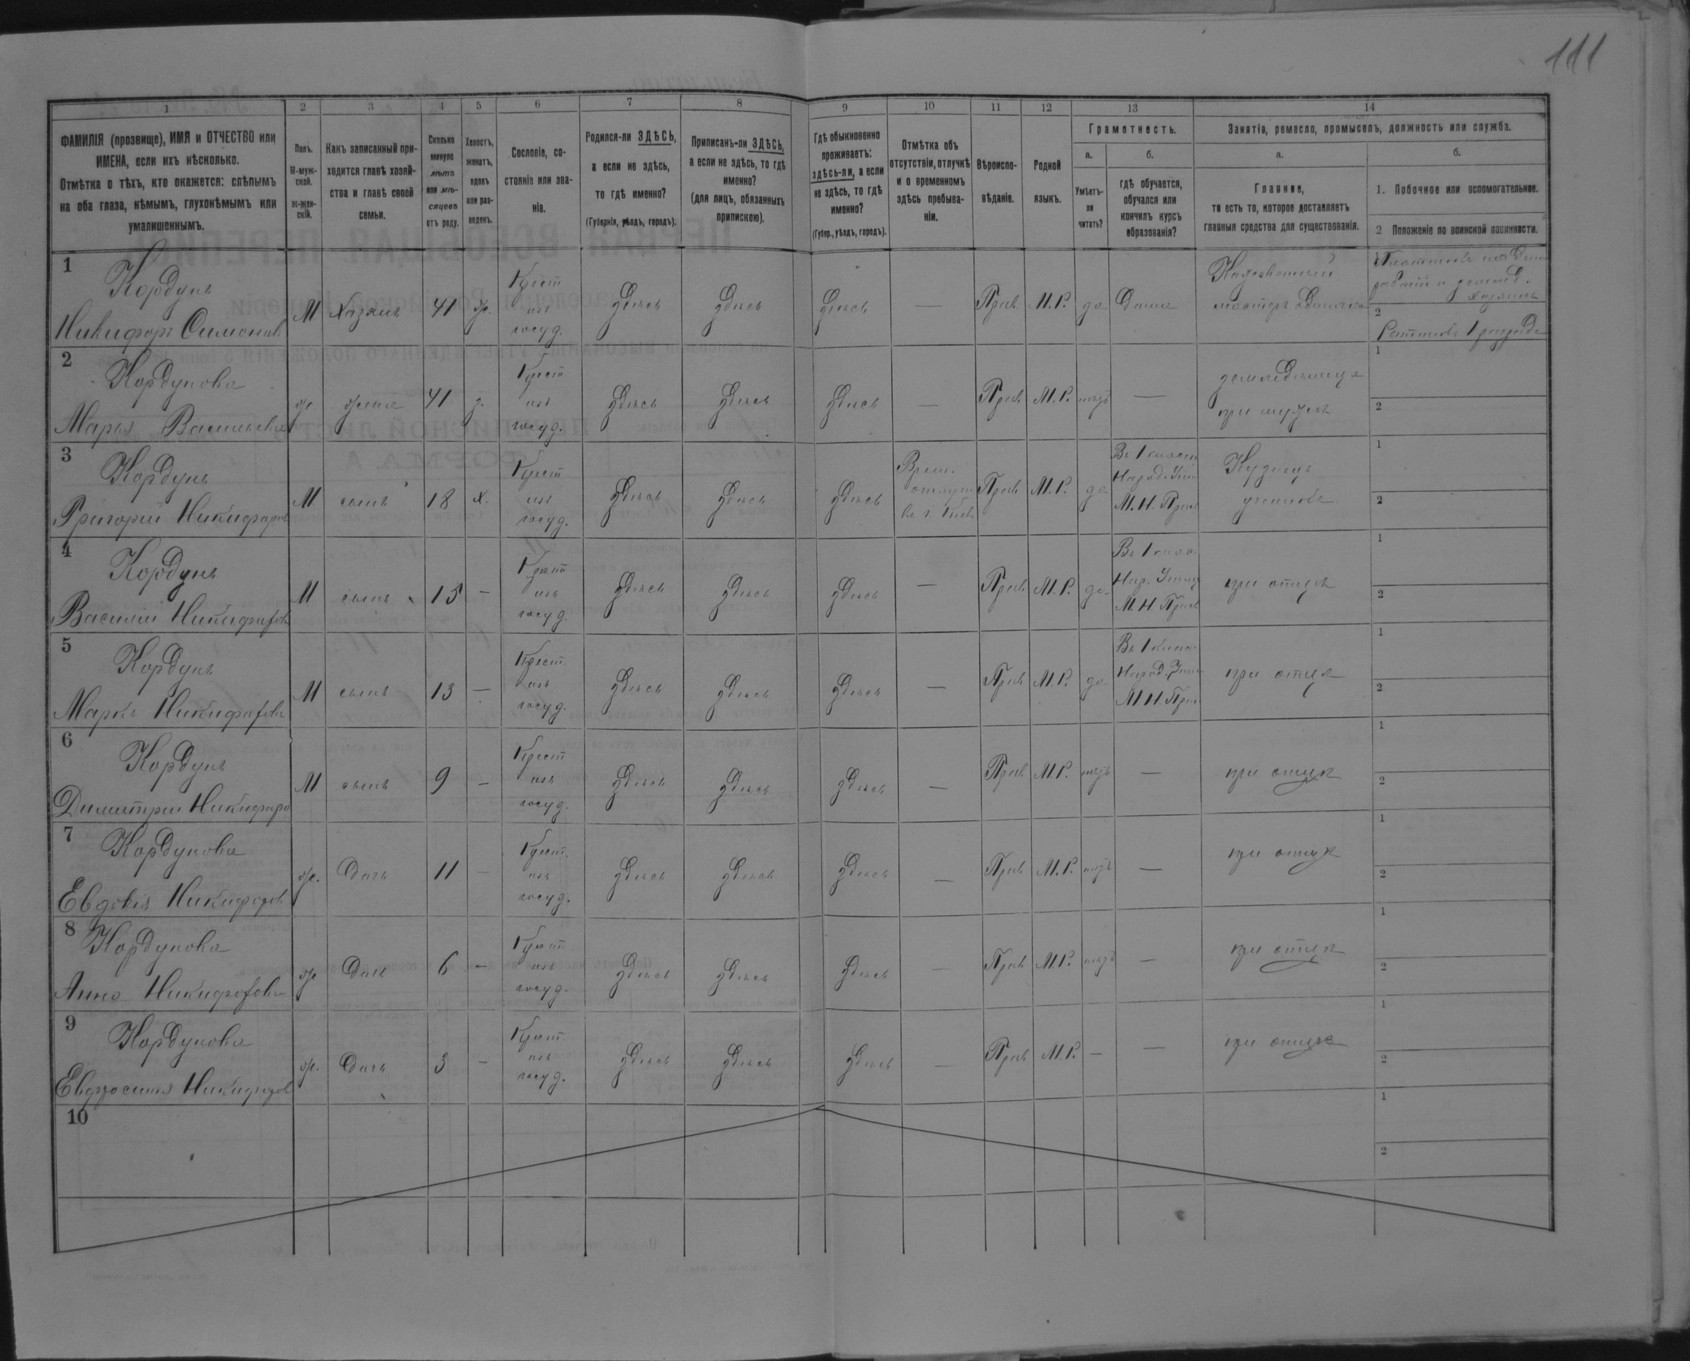 111
1 2 3 4 5 6 7 8 9 10 11 12 13 14
ФАМИЛІЯ (прозвище), ИМЯ и ОТЧЕСТВО или
ИМЕНА, если ихъ нѣсколько.
Отмѣтка о тѣхъ, кто окажется: слѣпымъ
на оба глаза, нѣмымъ, глухонѣмымъ или
умалишеннымъ.
Полъ.
М-муж-
ской.
ж-жен-
скій.
Какъ записанный при-
ходится главѣ хозяй-
ства и главѣ своей
семьи.
Сколько
минуло
лѣтъ
или мѣ-
сяцевъ
отъ роду.
Холостъ,
женатъ,
вдовъ
или раз-
веденъ.
Сословіе, со-
стояніе или зва-
ніе.
Родился-ли ЗДѢСЬ,
а если не здѣсь,
то гдѣ именно?
(Губернія, уѣздъ, городъ).
Приписанъ-ли ЗДѢСЬ,
а если не здѣсь, то гдѣ
именно?
(для лицъ, обязанныхъ
припискою).
Гдѣ обыкновенно
проживаетъ:
здѣсь-ли, а если
не здѣсь, то гдѣ
именно?
(Губер., уѣздъ, городъ).
Отмѣтка объ
отсутствіи, отлучкѣ
и о временномъ
здѣсь пребыва-
ніи.
Вѣроиспо-
вѣданіе.
Родной
языкъ.
Грамотность.
а.
Умѣетъ-
ли
читать?
б.
гдѣ обучается,
обучался или
кончилъ курсъ
образованія?
Занятія, ремесло, промыселъ, должность или служба.
а.
Главное,
то есть то, которое доставляетъ
главныя средства для существованія.
б.
1. Побочное или вспомогательное.
2 Положеніе по воинской повинности.
1
Кордунъ
Никифоръ Симоновъ
М Хозяинъ 41 ж.
Крест
изъ
госуд.
Здѣсь Здѣсь Здѣсь — Прав. М.Р. да Дома
мастеръ
1
2
Ратникъ 1 разряда
2
Кордунова
Марья Васильева
ж жена 41 з.
Крест
изъ
госуд.
Здѣсь Здѣсь Здѣсь — Прав. М.Р. нѣтъ —
при мужѣ
1
2
3
Кордунъ
Григорій Никифоровъ
М сынъ 18 х.
Крест
изъ
госуд.
Здѣсь Здѣсь Здѣсь
Прав. М.Р. да
М.Н. Прос
Кузнецъ
1
2
4
Кордунъ
Василій Никифоровъ
М сынъ 15 —
Крест
изъ
госуд.
Здѣсь Здѣсь Здѣсь — Прав. М.Р. да
М.Н. Прос
при отцѣ
1
2
5
Кордунъ
Марко Никифоровъ
М сынъ 13 —
Крест
изъ
госуд.
Здѣсь Здѣсь Здѣсь — Прав М.Р. да
М.Н. Прос
при отцѣ
1
2
6
Кордунъ
Димитрій Никифоро
М сынъ 9 —
Крест
изъ
госуд.
Здѣсь Здѣсь Здѣсь — Прав М.Р. нѣтъ — при отцѣ
1
2
7
Кордунова
Евдокія Никифоров
ж. Дочь 11 —
Крест.
изъ
госуд.
Здѣсь Здѣсь Здѣсь — Прав М.Р. нѣтъ — при отцѣ
1
2
8
Кордунова
Анна Никифорова
ж Доч 6 —
Крест
изъ
госуд.
Здѣсь Здѣсь Здѣсь — Прав М.Р. нѣтъ — при отцѣ
1
2
9
Кордунова
Евфросинія Никифоров
ж. Дочь 3 —
Крест
изъ
госуд.
Здѣсь Здѣсь Здѣсь — Прав М.Р. — — при отцѣ
1
2
10
1
2